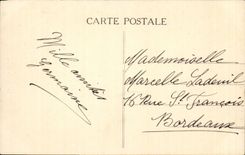 CARTE POSTALE
Mille amitiés
Germaine
Mademoiselle
Marcelle Ladevil
16 Rue St François
Bordeaux